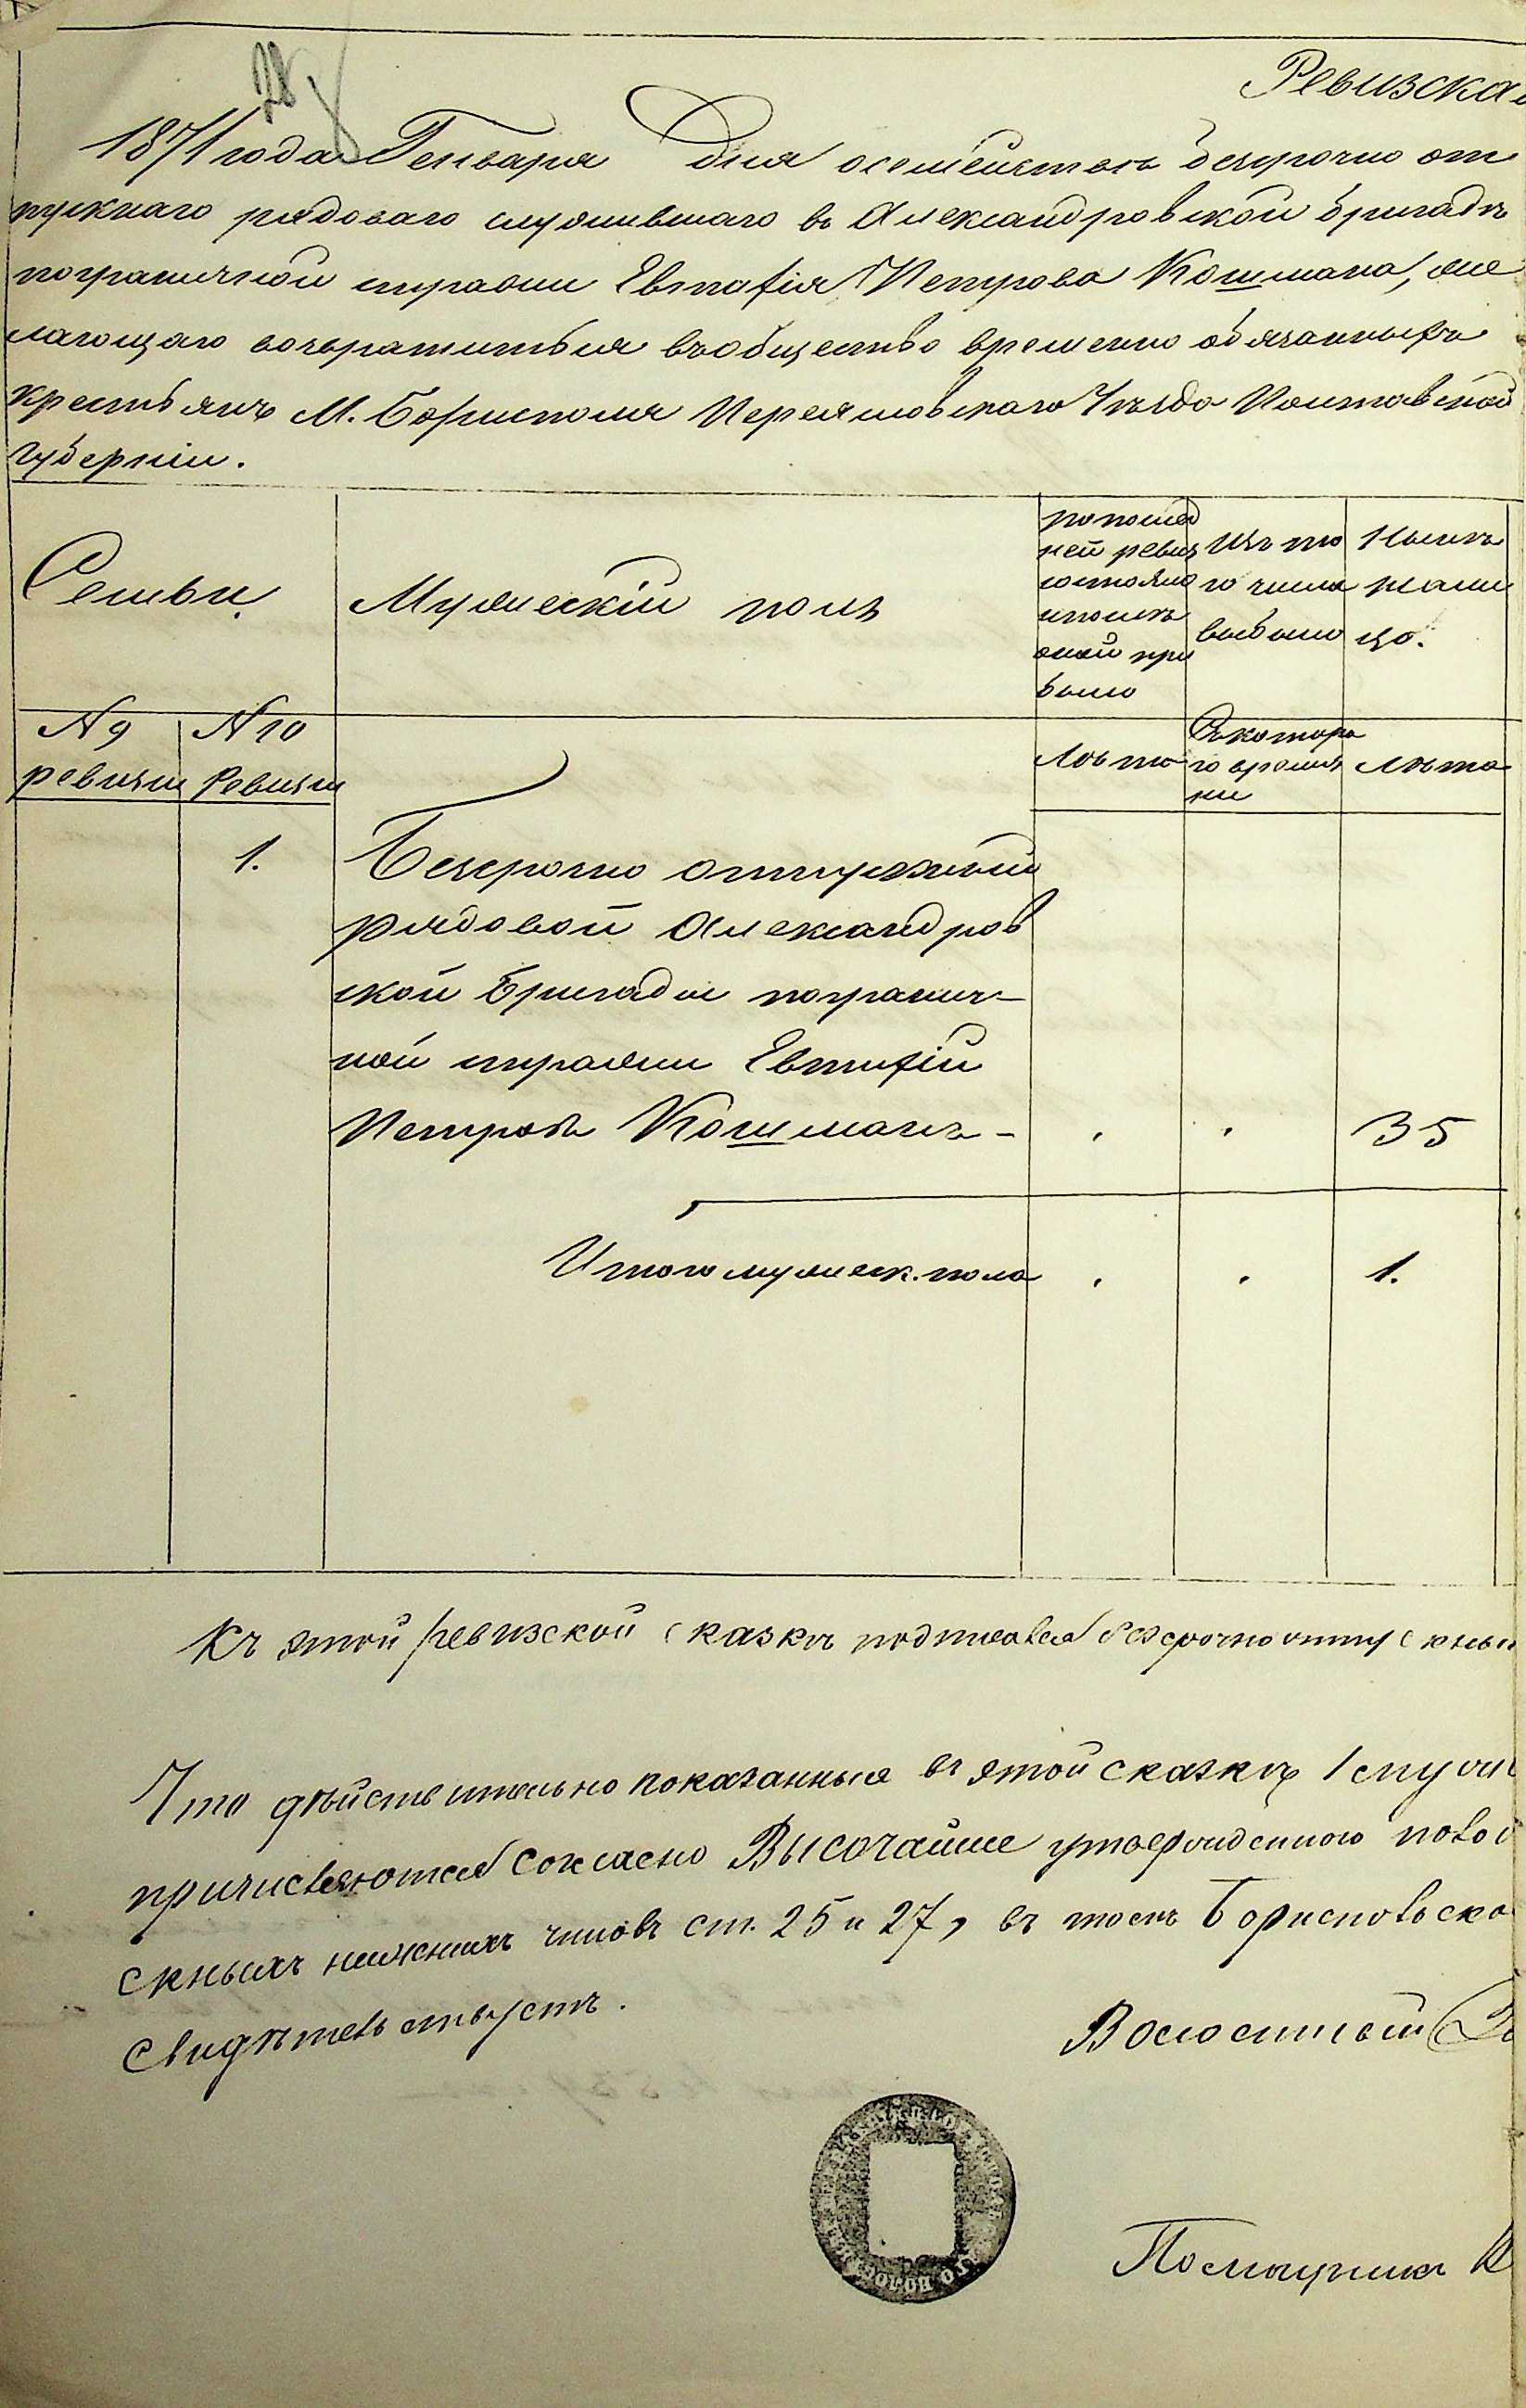 28
Ревизска
1871 года Генваря дня осемействѣ безсрочно от
пускнаго рядоваго служившаго въ Александровской бригадѣ
пограничной стражи Евтифія Петрова Кошмана, же
лающаго возвратиться въ общество временно обязанныхъ
крестьянъ М. Борисполя Переяславскаго Уѣзда Полтавской
губерніи.
Семьи
Мужескій полъ
по послед
ней ревиз
состояло
и послѣ
оной при
было
Изъ то
го числа
выбыло
Нынѣ
нали
цо.
N 9
ревизіи
N 10
Ревизіи
Лѣта
Съ котора
го времѣ
ни
Лѣта
1.
Безсрочно отпускной
рядовой Александров
ской Бригады погранич-
ной стражи Евтифій
Петровъ Кошманъ - 35
Итого мужеск. пола 1.
Къ этой ревизской сказкѣ подписался безсрочноотпускный
Что дѣйствительно показанныя въ этой сказкѣ 1 муж
причисляются согласно Высочайше утвержденного полож
скныхъ нижнихъ чиновъ ст. 25 и 27, въ томъ Бориспольско
свидѣтельствуетъ.
Волостный
Помощникъ